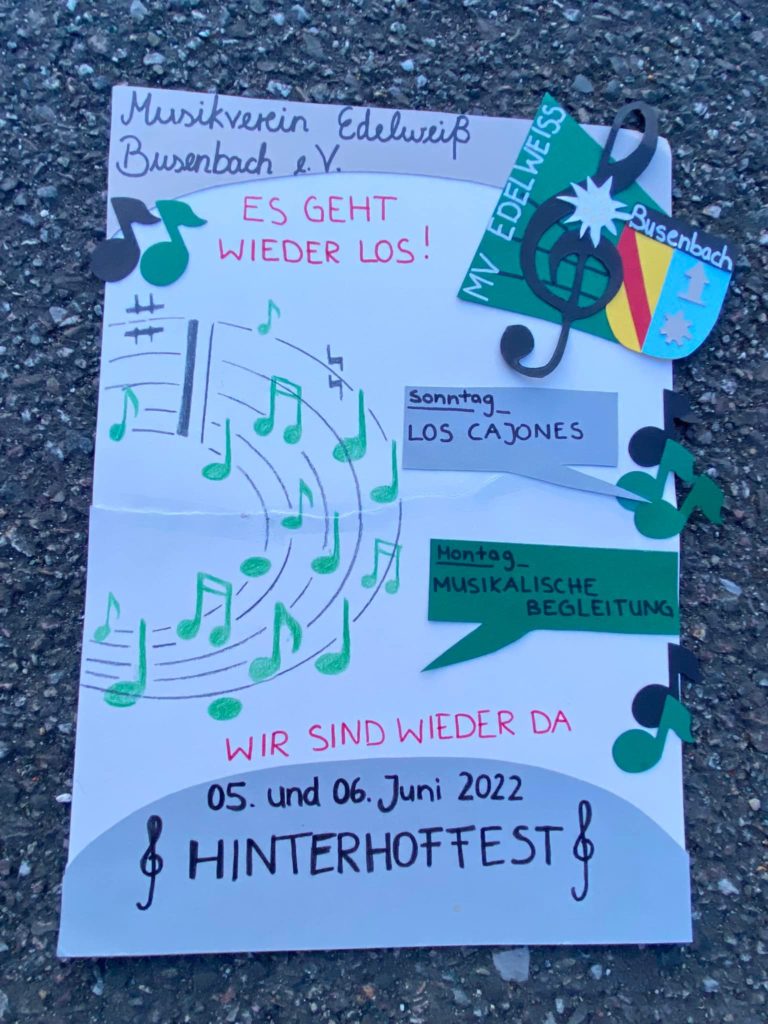 Musikverein Edelweiß
Busenbach e.V.
MV EDELWEISS
Busenbach
ES GEHT
WIEDER LOS!
Sonntag
LOS CAJONES
Montag
MUSIKALISCHE
BEGLEITUNG
WIR SIND WIEDER DA
05. und 06. Juni 2022
HINTERHOFFEST